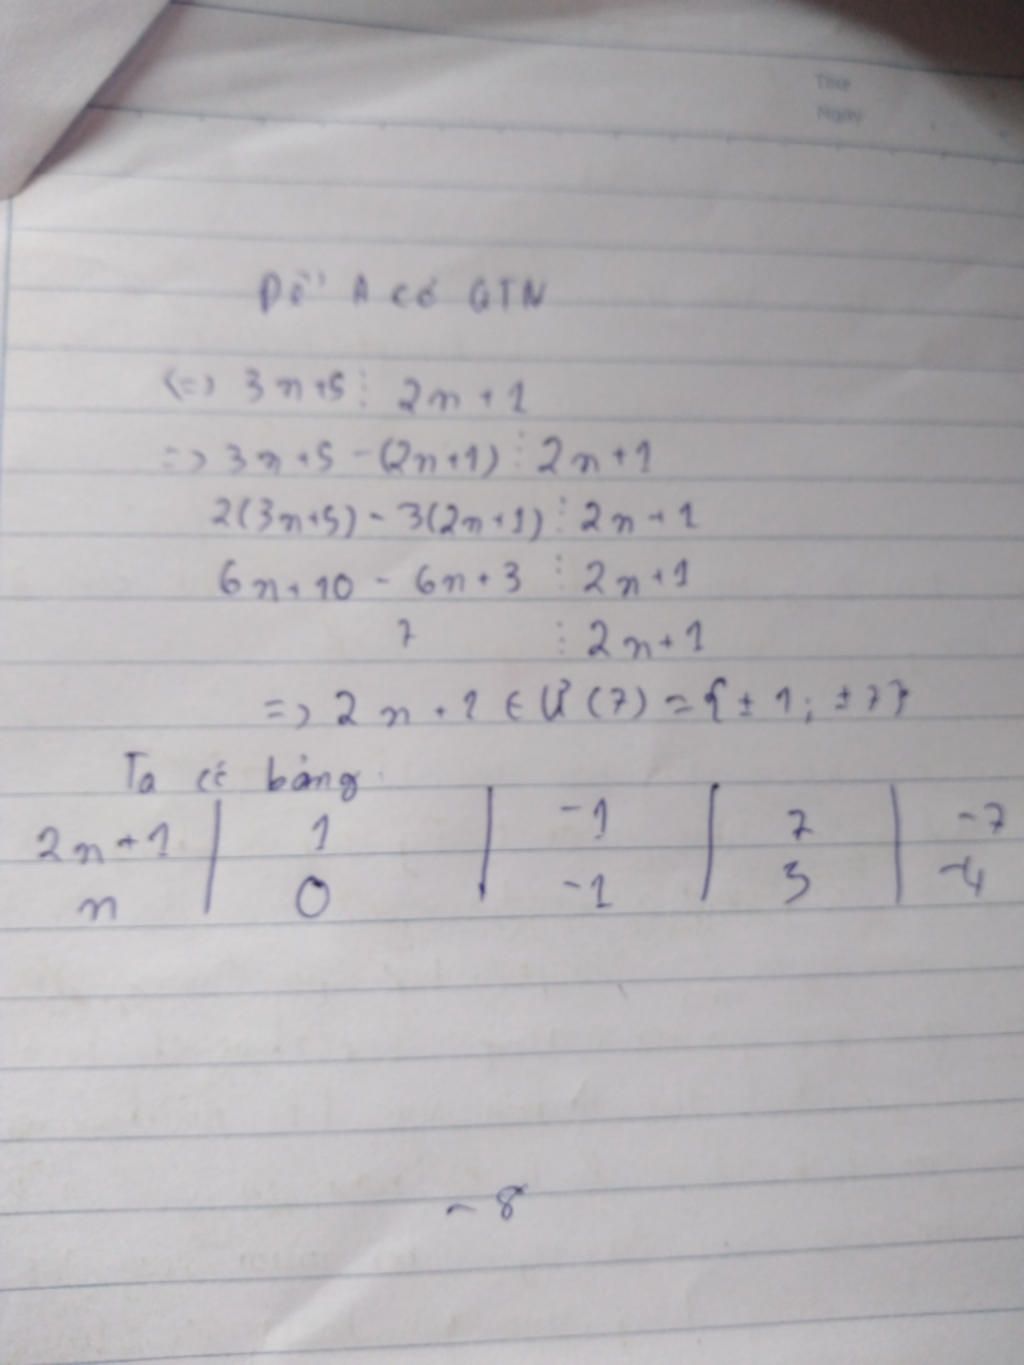 Thứ
Ngày
Để A có GTN
<=> 3n+5 ⋮ 2n+1
=> 3n+5 - (2n+1) ⋮ 2n+1
2(3n+5) - 3(2n+1) ⋮ 2n+1
6n+10 - 6n+3 ⋮ 2n+1
7 ⋮ 2n+1
=> 2n+1 ∈ Ư(7) = {±1; ±7}
Ta có bảng:
2n+1 | 1 | -1 | 7 | -7
n | 0 | -1 | 3 | -4
- 8